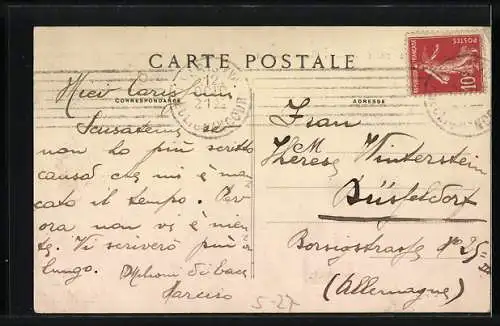 CARTE POSTALE
CORRESPONDANCE
ADRESSE
REPUBLIQUE FRANÇAISE
POSTES
10
Miei cari,
Scusatemi se
non ho più scritto
causa che mi è man
cato il tempo. Per
ora non vi è nien
te. Vi scriverò più a
lungo.
Milioni di baci
Narciso
Frau
Therese Winterstein
Düsseldorf
Borsigstrasse No 25 II
(Allemagne)
5-27